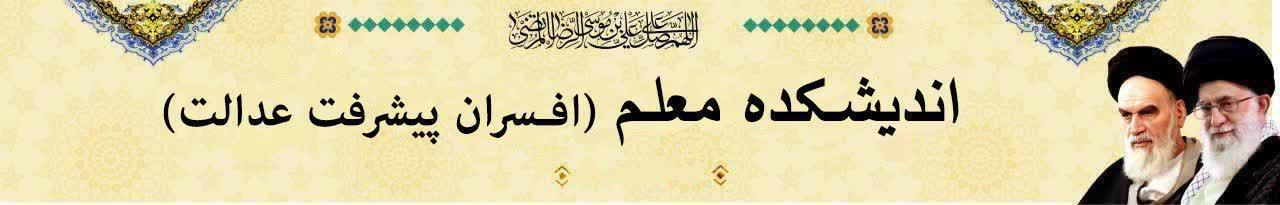 اللهم صل علی علی بن موسی الرضا المرتضی
اندیشکده معلم (افسران پیشرفت عدالت)